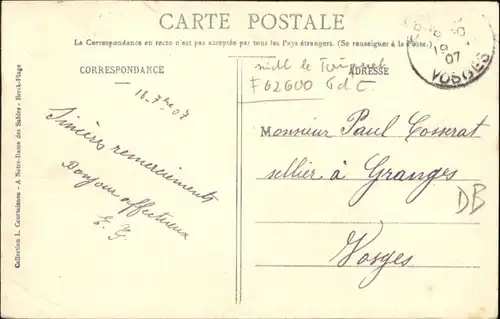 CARTE POSTALE
La Correspondance au recto n'est pas acceptée par tous les Pays étrangers. (Se renseigner à la Poste.)
CORRESPONDANCE
ADRESSE
F 62600 PdC
19
07
VOSGES
18. 7bre 07
Sincères remerciements
Bonjour affectueux
E. G
Monsieur Paul Cosserat
sellier à Granges
Vosges
DB
Collection L. Courtaisnon - A Notre-Dame des Sables - Berck-Plage